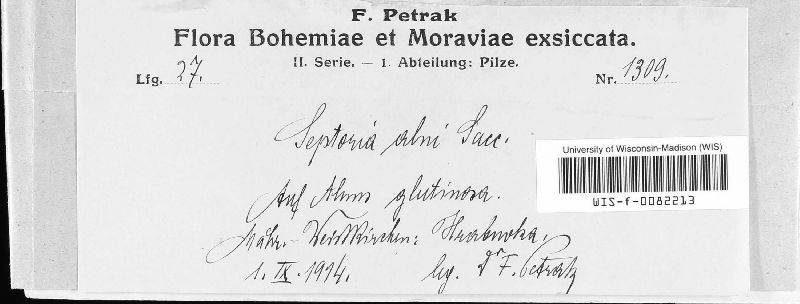 F. Petrak
Flora Bohemiae et Moraviae exsiccata.
II. Serie. — 1. Abteilung: Pilze.
Lfg. 27.
Nr. 1309.
Septoria alni Sacc.
University of Wisconsin-Madison (WIS)
WIS-f-0082213
Auf Alnus glutinosa.
Mähr.-Weisskirchen: Hrabuvka.
1. IX. 1914. lg. Dr F. Petrak